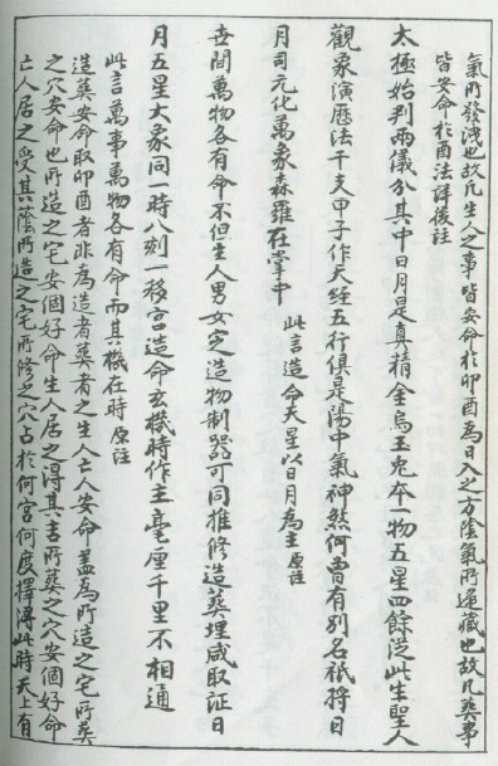 氣所發洩也故凡生人之事皆安命於卯酉為日入之方陰氣所遁藏也故凡葬事
皆安命於酉法詳後註
太極始判兩儀分其中日月是真精金烏玉兔本一物五星四餘從此生聖人
觀象演曆法干支甲子作天經五行俱是陽中氣神煞何曾有別名祇將日
月司元化萬象森羅在掌中 此言造命天星以日月為主原註
世間萬物各有命不但生人男女定造物制器可同推修造葬埋咸取証日
月五星大象同一時八刻一移宮造命玄機時作主毫厘千里不相通
此言萬事萬物各有命而其機在時原註
造葬安命取卯酉者非為造者葬者之生人亡人安命蓋為所造之宅所葬
之穴安命也所造之宅安個好命生人居之得其吉所葬之穴安個好命
亡人居之受其蔭所造之宅所修之穴占於何宮何度擇得此時天上有